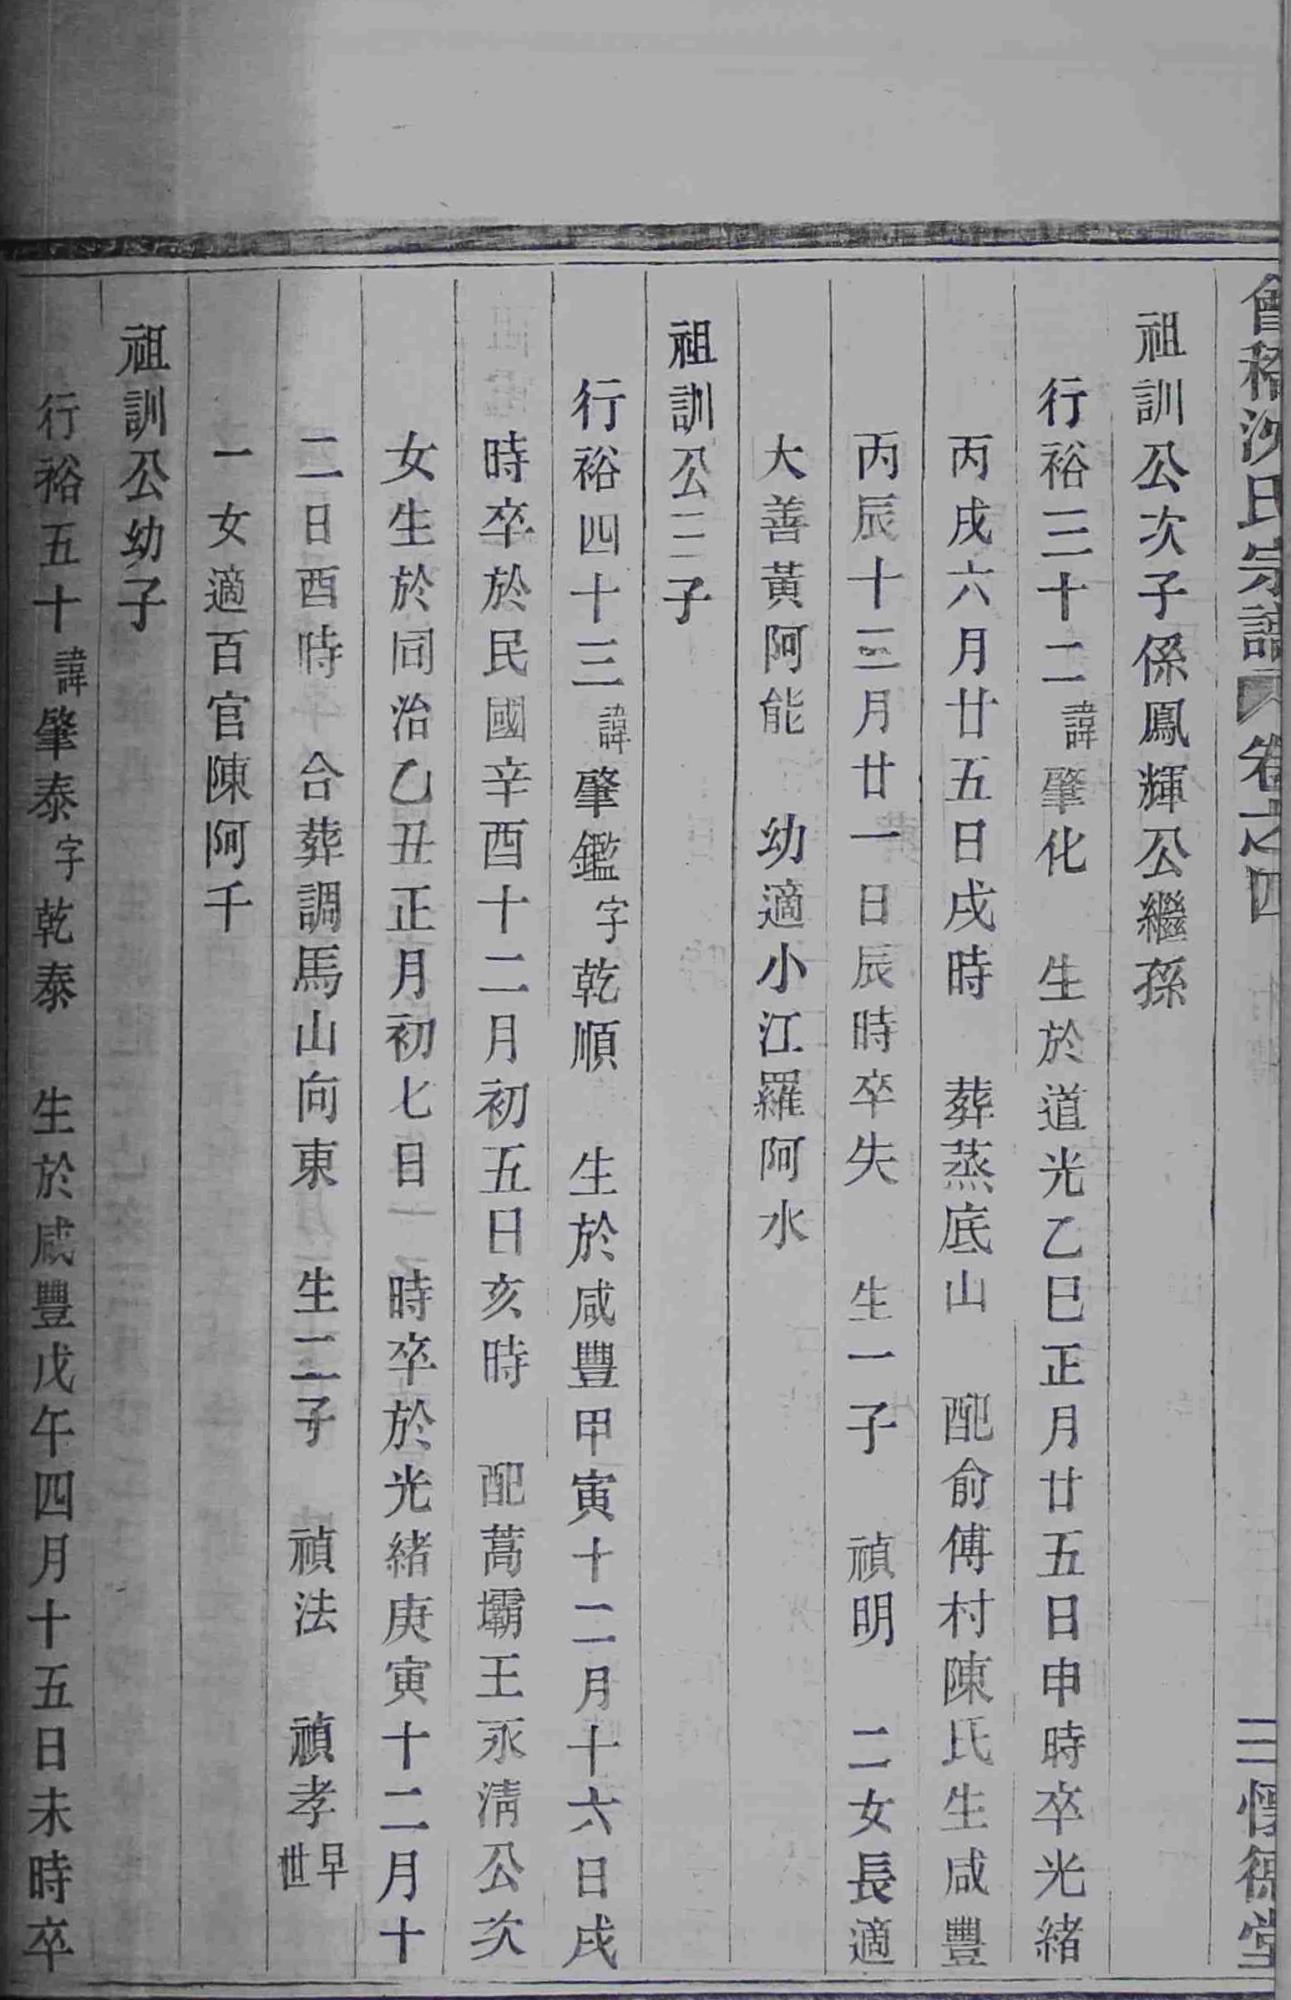 會稽沙氏宗譜 卷之四 三 惇德堂
祖訓公次子係鳳輝公繼孫
行裕三十二諱肇化 生於道光乙巳正月廿五日申時卒光緒
丙戌六月廿五日戌時 葬蒸底山 配俞傅村陳氏生咸豐
丙辰十三月廿一日辰時卒失 生一子 禎明 二女長適
大善黃阿能 幼適小江羅阿水
祖訓公三子
行裕四十三諱肇鑑字乾順 生於咸豐甲寅十二月十六日戌
時卒於民國辛酉十二月初五日亥時 配蒿壩王永淸公次
女生於同治乙丑正月初七日 時卒於光緒庚寅十二月十
二日酉時 合葬調馬山向東 生二子 禎法 禎孝早世
一女適百官陳阿千
祖訓公幼子
行裕五十諱肇泰字乾泰 生於咸豐戊午四月十五日未時卒